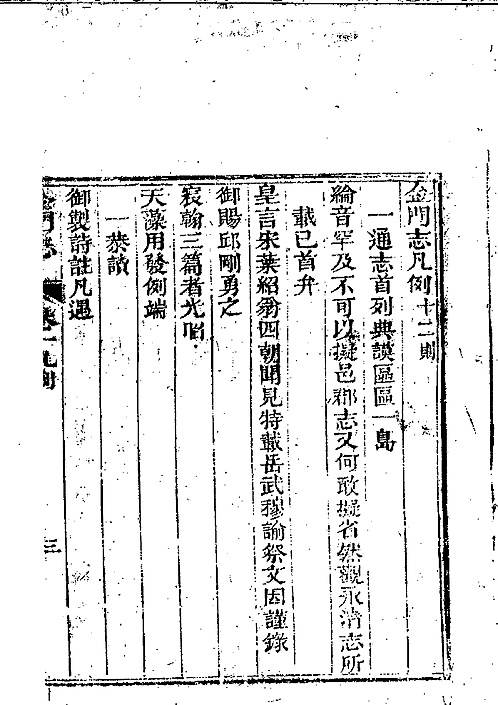 金門志凡例十二則
一通志首列典謨區區一島
綸音罕及不可以擬邑郡志又何敢擬省然觀永清志所
載已首弁
皇言宋葉紹翁四朝聞見特載岳武穆諭祭文因謹錄
御賜邱剛勇之
宸翰三篇者光唱
天藻用發例端
一恭讀
御製詩註凡遇
金門志 卷一凡例 三